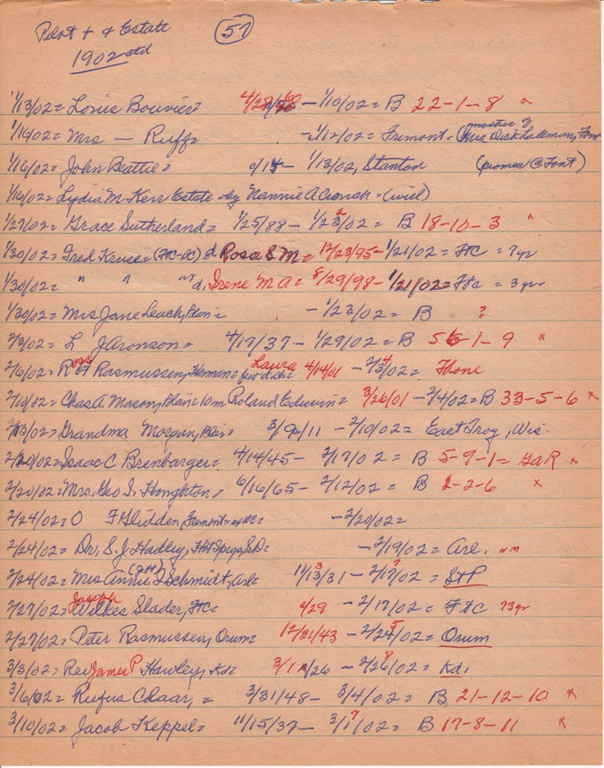 Pilot + & Estate (57)
1902 std
1/13/02 = Louis Bouvier = - 1/10/02 = B 22-1-8 x
1/14/02 = Mrs — Ruff = - 1/12/02 = Fremont. (mother of Mrs Dick
1/16/02 = John Beattie = d/15 - 1/13/02, Stanton (pioneer @ Font)
1/16/02 = Lydia M. Kerr Estate - by Nannie A = (will)
1/27/02 = Grace Sutherland = 1/25/88 - /02 = B 18-10-3 "
1/30/02 = Fred Kruse = (FtC-DC) d Rosa S M = 12/23/95 - 1/21/02 = FtC = 7 yr
1/30/02 = " " d, Irene M A = 8/29/98 - 1/21/02 = Ftc = 3 yr
1/30/02 = Mrs Jane Leach, Blair = - 1/23/02 = B ?
2/3/02 = L J Aronson = 4/17/37 - 1/29/02 = B -1-9 x
2/6/02 = Rasmussen, Herman = Laura 4/14/01 - /02 = Fhone
2/10/02 = Chas A Mason, Blair = 10m Roland Edwin = 3/26/01 - 2/4/02 = B 33-5-6 x
2/13/02 = Grandma Morgan, Blair = /11 - 2/10/02 = East Troy, Wis.
2/20/02 = Isaac C Brenbarger = 4/14/45 - 2/17/02 = B 5-9-1 = GaR x
2/20/02 = Mrs. Geo S. Houghton, 6/16/65 - 2/12/02 = B 2-2-6 x
2/24/02 = O F Glidden, Fremont - = - 2/20/02 =
2/24/02 = Dr. S. J. Hadley, Hot Spgs S.D. = - 2/19/02 = Arl. "
2/24/02 = Mrs Annie Schmidt, Arl = 11/13/31 - /02 = StP
2/27/02 = Joseph Wilkes Slader, FtC = /29 - 2/17/02 = FtC 73 yr
2/27/02 = Peter Rasmussen, Orum = 12/31/43 - /02 = Orum
3/3/02 = Rev James P Hawley, Kd = 3/1/26 - /02 = Kd,
3/6/02 = Rufus Chaar, = 3/31/48 - 3/4/02 = B 21-12-10 x
3/10/02 = Jacob Keppel = 11/15/37 - /02 = B 17-8-11 x